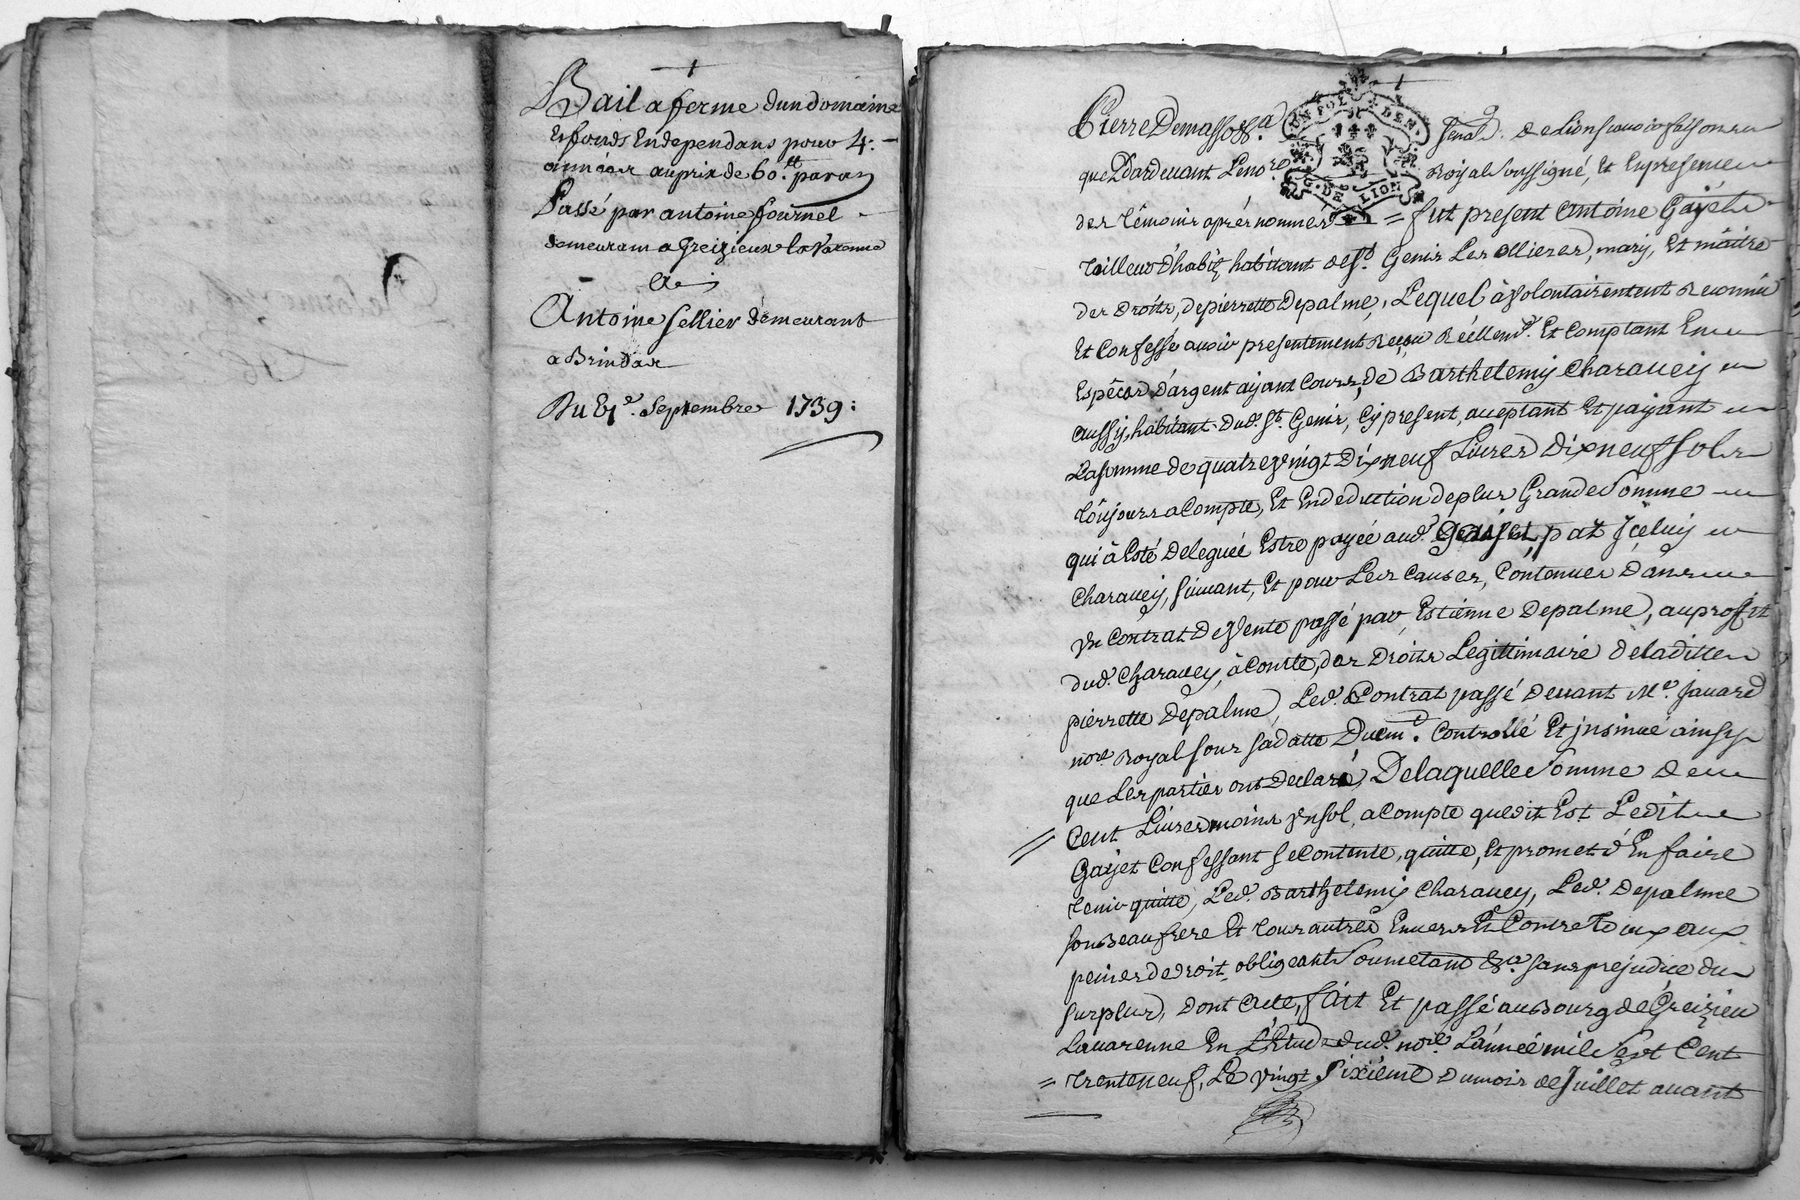 Bail a ferme dun domaine
Et fonds En dependans pour 4.
années au prix de 60.ᵗᵗ par an
Passé par antoine fournel
demeurant a Greizieux la Varenne
A
Antoine Sellier demeurant
a Brindas
Du septembre 1739:
Pierre Demasso &.ᵃ Senal. de Lion scavoir faisons
que Pardevant Le noʳᵉ Royal Soussigné, Et En presence
des Témoins aprés nommés = fut present Antoine Gayet
Tailleur d'habit, habitant de Sᵗ. Genis Les ollieres, mary, Et maitre
des Droits, de pierrette Depalme, Lequel à volontairement Reconnu
Et Confessé avoir presentement Reçeu Réellemᵗ. Et Comptant En
Espéces D'argent ayant Cours, de Barthelemy Charavey
aussy habitant dud. Sᵗ. Genis, Cy present, aceptant Et payant
La somme de quatre vingt Dix neuf Livres Dix neuf sols
Toujours a Compte, Et En deduction de plus Grande Somme
qui à Esté Deleguée Estre payée aud. Gayet, par Jceluy
Charavey, suivant, Et pour Les Causes, Contenues Dans
Vn Contrat De Vente passé par Estienne Depalme, au proffit
dud. Charavey, à Compte, des Droits Legittimaire de laditte
pierrette Depalme, Led. Contrat passé Devant Mᵉ. Javard
noʳᵉ Royal sous sa datte Duem. Controllé Et jnsinué ainsy
que Les parties ont Declaré, De laquelle Somme de
Cent Livres moins Vn sol, a Compte que dit Est Ledit
Gayet Confessant se Contente, quitte, Et promet d'En faire
tenir quitte, Led. Barthelemy Charavey, Led. Depalme
son Beaufrere Et tous autres Envers Et Contre Tous aux
peines de droit, obligeant Soumetant &.ᵃ sans prejudice du
surplus, Dont Acte, fait Et passé au Bourg de Greizieu
Lavarenne En L'Etude dud. noʳᵉ L'année mil Sept Cent
trente neuf, Le Vingt Sixiéme du mois de Juillet avant